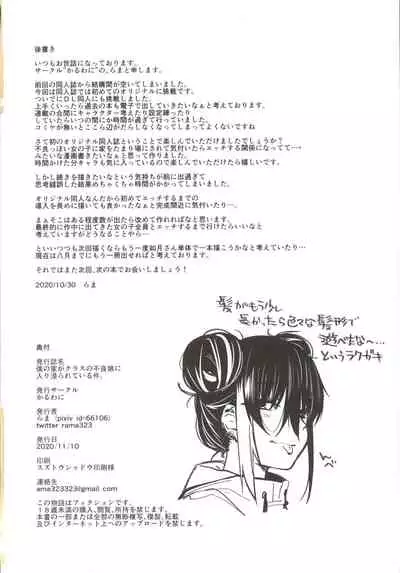 後書き
いつもお世話になっております。
サークル"かるわに"の、らまと申します。
前回の同人誌から結構間が空いてしまいました。
今回は同人誌では初めてのオリジナルに挑戦です。
ついでにDL同人にも挑戦しました。
上手くいったら過去の本も電子で出していきたいなぁと考えております。
連載の合間にキャラクター考えたり設定練ったり
してしていたらいつの間にか時間が過ぎて行っていました。
コミケが無いとここら辺がだらしなくなってしまってよくないですね
さて初のオリジナル同人誌ということで楽しんでいただけましたでしょうか?
不良っぽい女の子に家をたまり場にされて気付いたらエッチする関係になってて…っ
みたいな漫画書きたいなぁと思って作りました。
時間かけた分キャラも気に入っているので楽しんでいただけたら嬉しいです。
しかし続きを描きたいなという気持ちが前に出過ぎて
思考錯誤した結果めちゃくちゃ時間がかかってしまいました。
オリジナル同人なんだから初めてエッチするまでの
導入を長めに描いても良かったなぁと完成間近に気付いたり…
まぁそこはある程度数が出たら改めて作れればなと思います。
最終的に作中に出てきた女の子全員とエッチするまで行けたらいいなと
考えていますがどうなることやら…
といいつつも次回描くならもう一度如月さん単体で一本描こうかなとも考えていたり…
現在は八月までにもう一冊出せればと考えております。
それではまた次回、次の本でお会いしましょう!
2020/10/30 らま
髪がもう少し
長かったら色々な髪形で
遊べたな〜…
というラクガキ
んべ
奥付
発行誌名
僕の家がクラスの不良娘に
入り浸られている件。
発行サークル
かるわに
発行者
らま (pixiv id=66106)
twitter rama323
発行日
2020/11/10
印刷
スズトウシャドウ印刷様
連絡先
ama323323@gmail.com
この物語はフィクションです。
18歳未満の購入、閲覧、所持を禁じます。
本書の一部または全部の無断複写、複製、転載
及びインターネット上へのアップロードを禁じます。